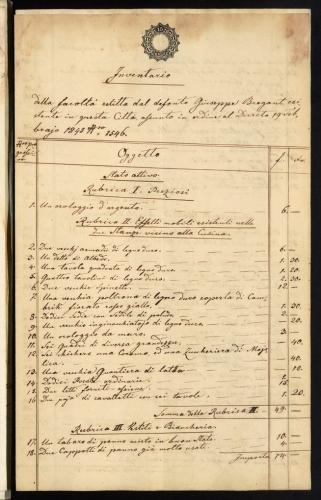 Inventario
della facoltà relitta dal defonto Giuseppe Bregant esi
stente in questa Città assunto in ordine al Decreto 19
brajo 1845 N.ro 1546.
Oggetto f.
Stato attivo.
Rubrica I. Preziosi
1. Un orologio d'argento. 6 —
Rubrica II. Effetti mobili esistenti nelle
due Stanze vicino alla Cucina.
2. Due vecchj armadi di legno duro. 6 —
3. Un detto di Albedo. 1. 30.
4. Una tavola quadrata di legno duro 1. 20.
5. Quattro tavolini di legno duro. 2. 30.
6. Due vecchie Spinette. 12 —
7. Una vecchia poltrona di legno duro coperta di
fiorato rosso giallo. 1. 30.
8. Dodici Sedie con sedile di 2.
9. Un vecchio inginocchiatojo di legno duro 20.
10. Un orologio da muro. 3. —
11. Sei quadri di diversa grandezza. 40.
12. Sei chichere una Cocuma, ed una Zuccheriera di Majo
lica. 40.
13. Una vecchia Guantiera di latta 10.
14. Dodici ordinarie 1.
15. Due letti forniti
16. Due paja di cavalletti con sei tavole. 1. 20.
Somma della Rubrica II. 49. —
Rubrica III. Vestiti e Biancheria.
17. Un tabaro di panno usato in buon stato. 10. —
18. Due Cappotti di panno già molto usati. 4. —
Importa 14. —